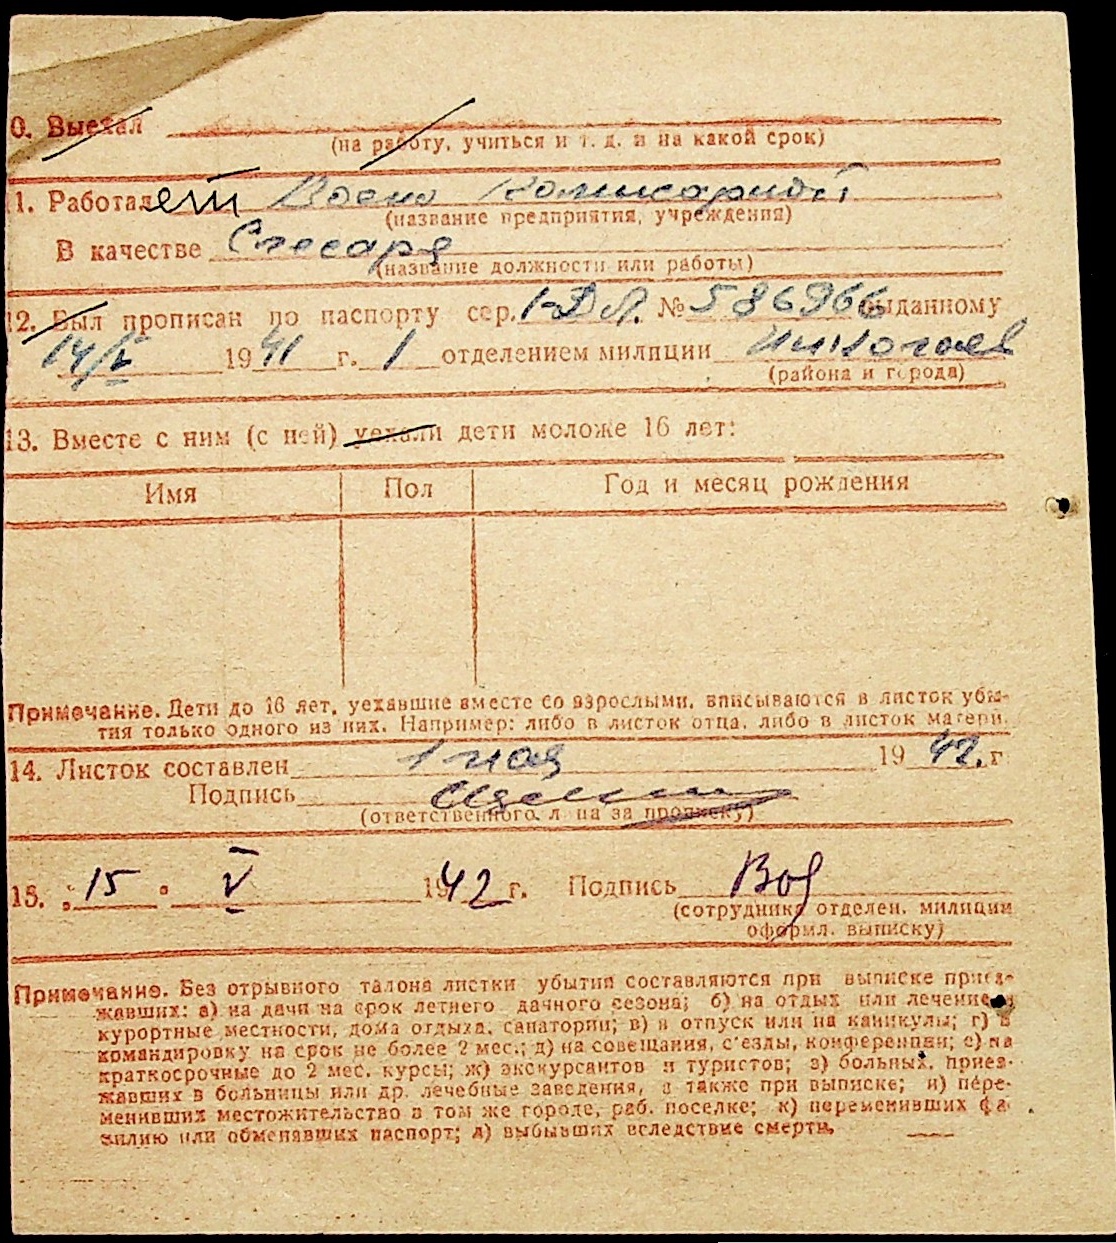 0. Выехал
(на работу, учиться и т. д. и на какой срок)
1. Работает Воен Комисариат
(название предприятия, учреждения)
В качестве Слесаря
(название должности или работы)
12. Был прописан по паспорту сер. 1-ДЛ. № 586966 выданному
14/V 1941 г. 1 отделением милиции
(района и города)
13. Вместе с ним (с ней) уехали дети моложе 16 лет:
Имя Пол Год и месяц рождения
Примечание. Дети до 16 лет, уехавшие вместе со взрослыми, вписываются в листок убы-
тия только одного из них. Например: либо в листок отца, либо в листок матери.
14. Листок составлен 1 мая 1942. г.
Подпись
(ответственного л на за прописку)
15. 15 V 1942 г. Подпись
(сотрудника отделен. милиции
оформл. выписку)
Примечание. Без отрывного талона листки убытия составляются при выписке приез-
жавших: а) на дачи на срок летнего дачного сезона; б) на отдых или лечение в
курортные местности, дома отдыха, санатории; в) в отпуск или на каникулы; г) в
командировку на срок не более 2 мес.; д) на совещания, с'езды, конференции; е) на
краткосрочные до 2 мес. курсы; ж) экскурсантов и туристов; з) больных, приез-
жавших в больницы или др. лечебные заведения, а также при выписке; и) пере-
менивших местожительство в том же городе, раб. поселке; к) переменивших фа
милию или обменявших паспорт; л) выбывших вследствие смерти.